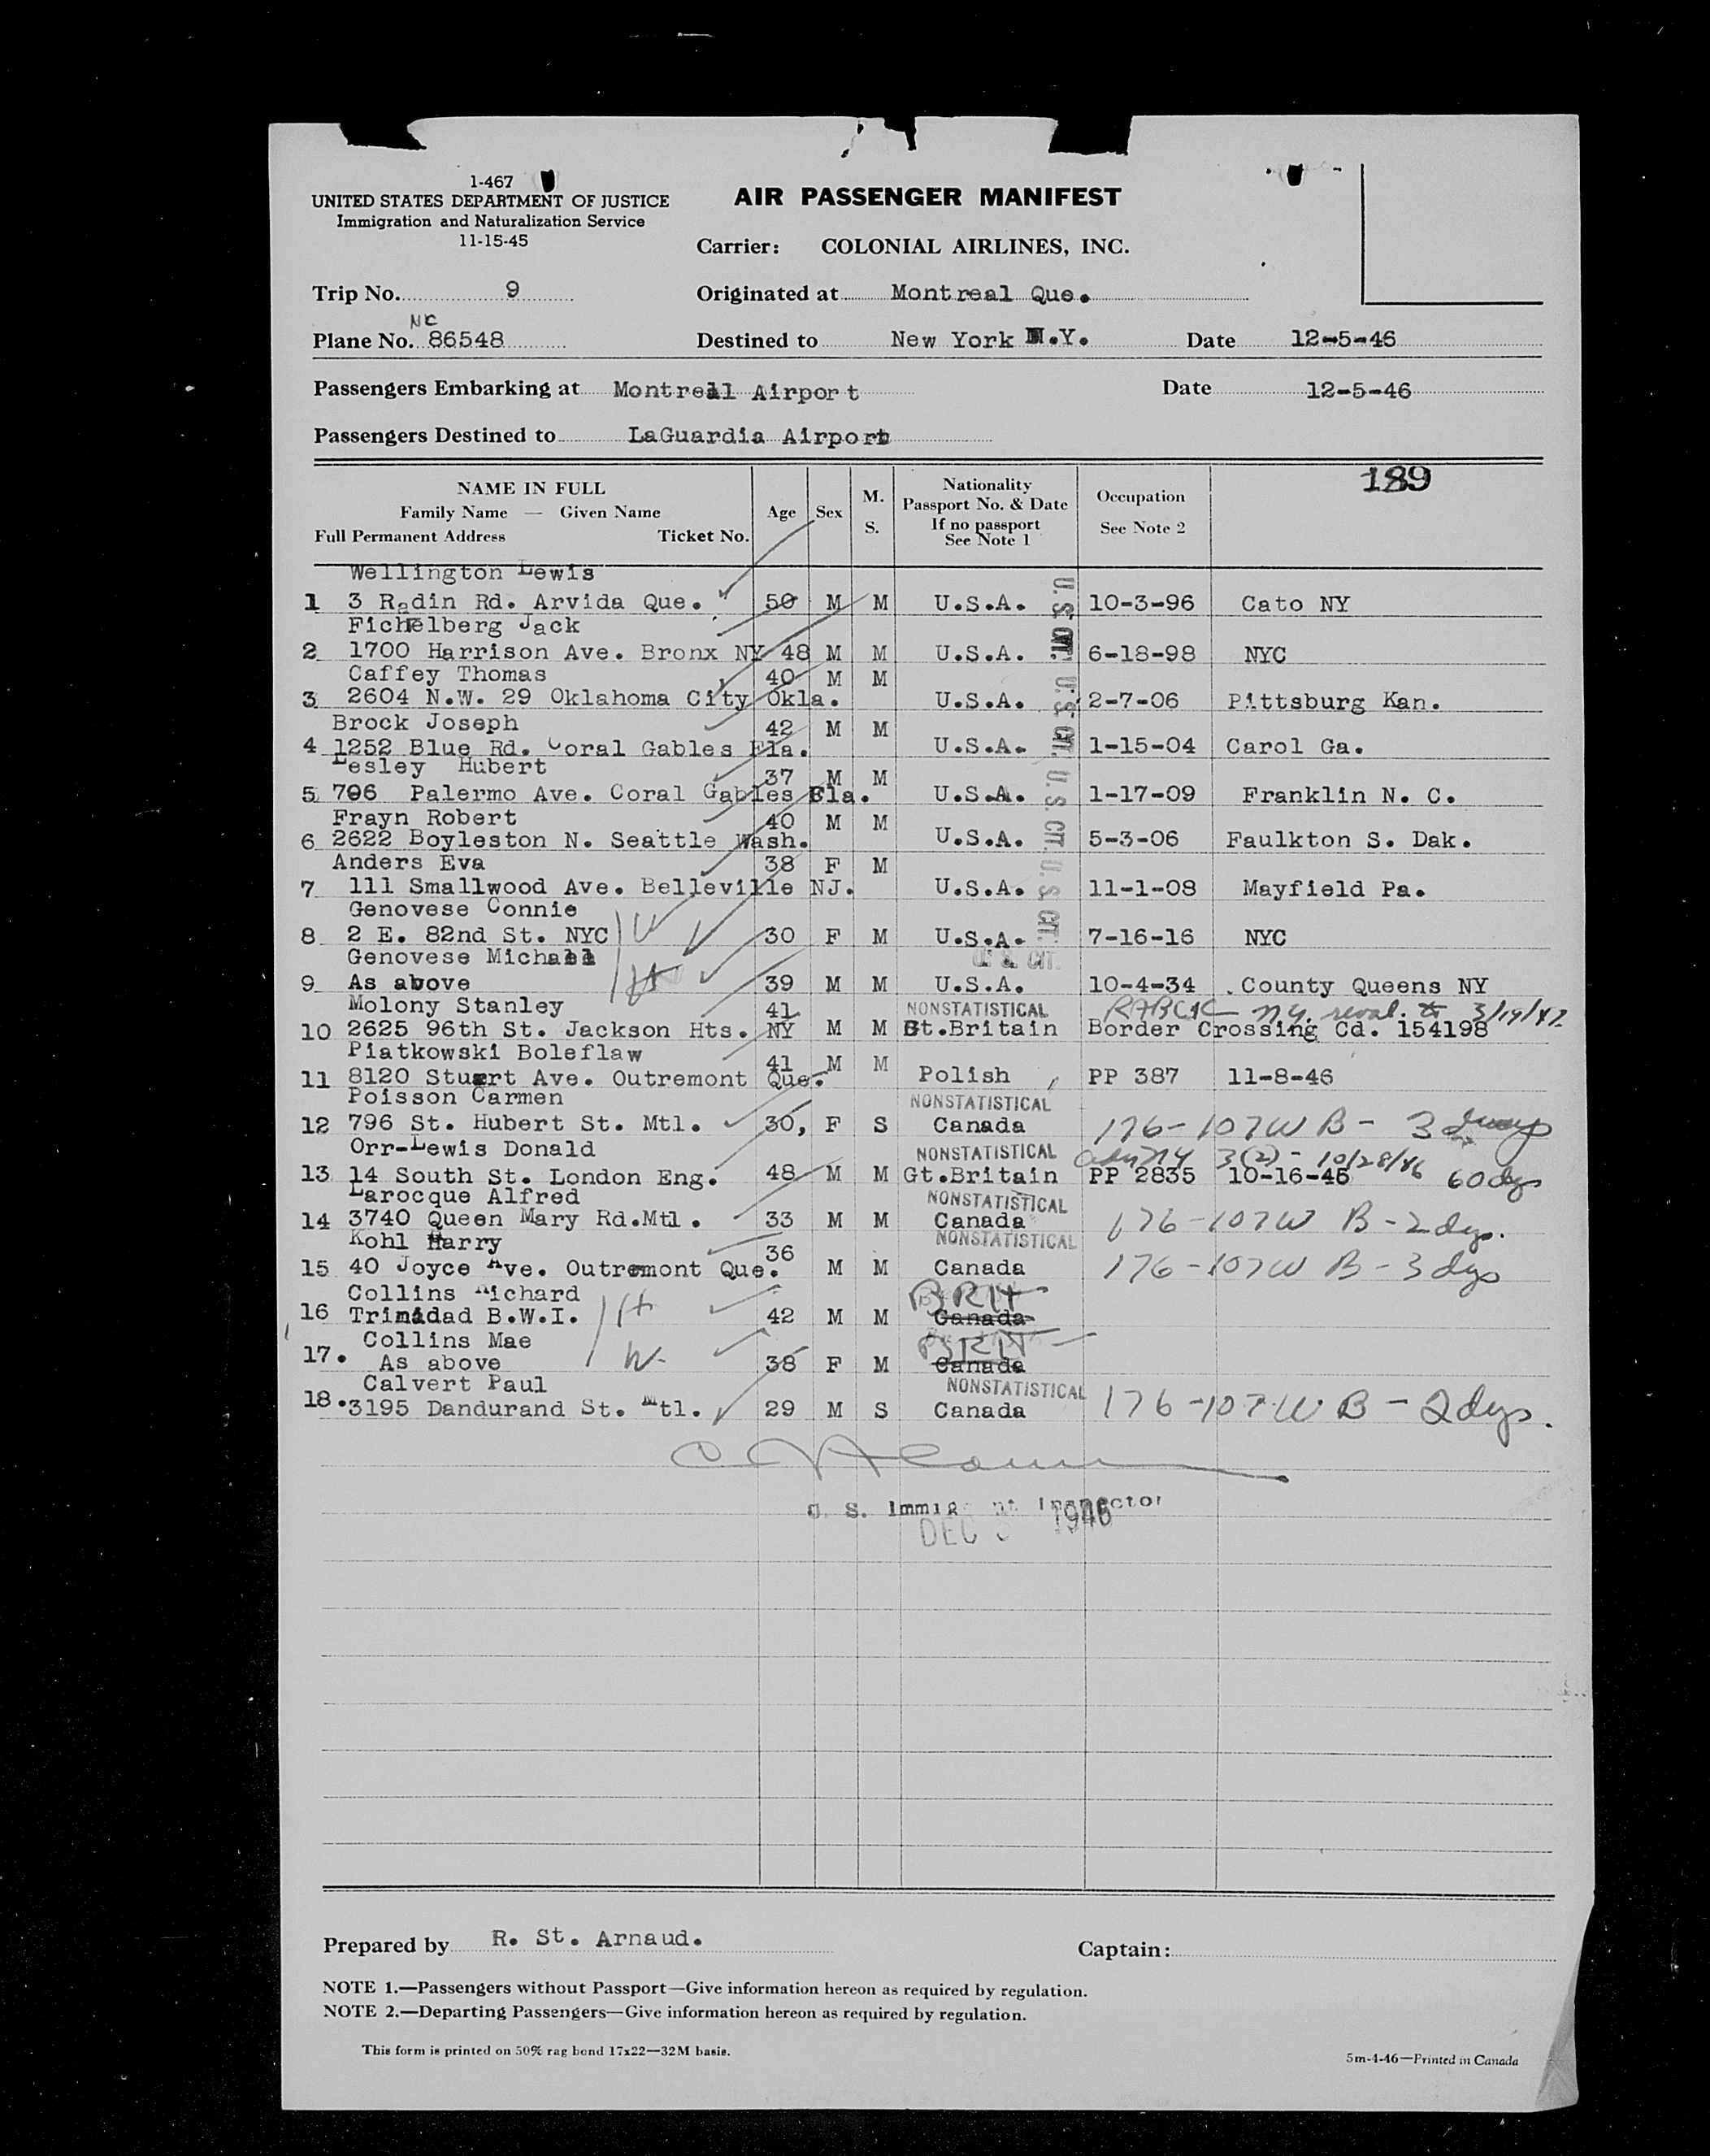 1-467
UNITED STATES DEPARTMENT OF JUSTICE
Immigration and Naturalization Service
11-15-45
AIR PASSENGER MANIFEST
Carrier: COLONIAL AIRLINES, INC.
Trip No. 9
Originated at Montreal Que.
NC
Plane No. 86548
Destined to New York N.Y. Date 12-5-46
Passengers Embarking at Montreal Airport Date 12-5-46
Passengers Destined to LaGuardia Airport
189
NAME IN FULL
Family Name — Given Name
Full Permanent Address Ticket No.
Age
Sex
M.
S.
Nationality
Passport No. & Date
If no passport
See Note 1
Occupation
See Note 2
Wellington Lewis
1 3 Radin Rd. Arvida Que. 50 M M U.S.A. U. S. CIT. 10-3-96 Cato NY
Fichelberg Jack
2 1700 Harrison Ave. Bronx NY 48 M M U.S.A. 6-18-98 NYC
Caffey Thomas 40 M M
3 2604 N.W. 29 Oklahoma City Okla. U.S.A. U. S. CIT. 2-7-06 Pittsburg Kan.
Brock Joseph 42 M M
4 1252 Blue Rd. Coral Gables Fla. U.S.A. 1-15-04 Carol Ga.
Lesley Hubert 37 M M
5 706 Palermo Ave. Coral Gables Fla. U.S.A. U. S. CIT. 1-17-09 Franklin N. C.
Frayn Robert 40 M M
6 2622 Boyleston N. Seattle Wash. U.S.A. 5-3-06 Faulkton S. Dak.
Anders Eva 38 F M
7 111 Smallwood Ave. Belleville NJ. U.S.A. U. S. CIT. 11-1-08 Mayfield Pa.
Genovese Connie
8 2 E. 82nd St. NYC W 30 F M U.S.A. 7-16-16 NYC
Genovese Michael U. S. CIT.
9 As above H 39 M M U.S.A. 10-4-34 County Queens NY
Molony Stanley 41 NONSTATISTICAL RABCIC N.Y. reval. to 3/19/47
10 2625 96th St. Jackson Hts. NY M M Gt.Britain Border Crossing Cd. 154198
Piatkowski Boleflaw 41 M M
11 8120 Stuart Ave. Outremont Que. Polish PP 387 11-8-46
Poisson Carmen NONSTATISTICAL
12 796 St. Hubert St. Mtl. 30, F S Canada 176-107W B- 3 days
Orr-Lewis Donald NONSTATISTICAL Adm NY 3(2) - 10/28/46 60 dys
13 14 South St. London Eng. 48 M M Gt.Britain PP 2835 10-16-45
Larocque Alfred NONSTATISTICAL
14 3740 Queen Mary Rd.Mtl. 33 M M Canada 176-107W B-2 dys.
Kohl Harry 36 NONSTATISTICAL
15 40 Joyce Ave. Outremont Que. M M Canada 176-107W B-3 dys
Collins Richard BRIT
16 Trinidad B.W.I. H 42 M M Canada
Collins Mae BRIT
17. As above W- 38 F M Canada
Calvert Paul NONSTATISTICAL
18. 3195 Dandurand St. Mtl. 29 M S Canada 176-107W B-2 dys.
U. S. Inspector
DEC 1946
Prepared by R. St. Arnaud.
Captain:
NOTE 1.—Passengers without Passport—Give information hereon as required by regulation.
NOTE 2.—Departing Passengers—Give information hereon as required by regulation.
This form is printed on 50% rag bond 17x22—32M basis.
5m-4-46—Printed in Canada